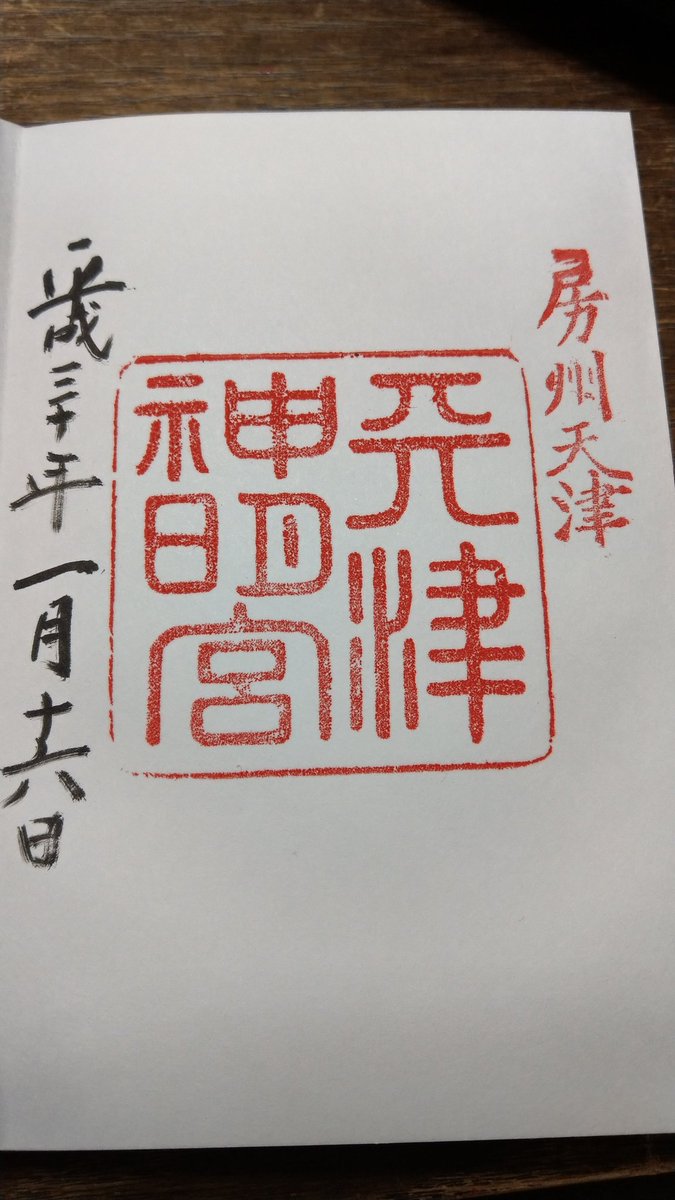 房州天津
天津
神明宮
平成三十年一月十六日